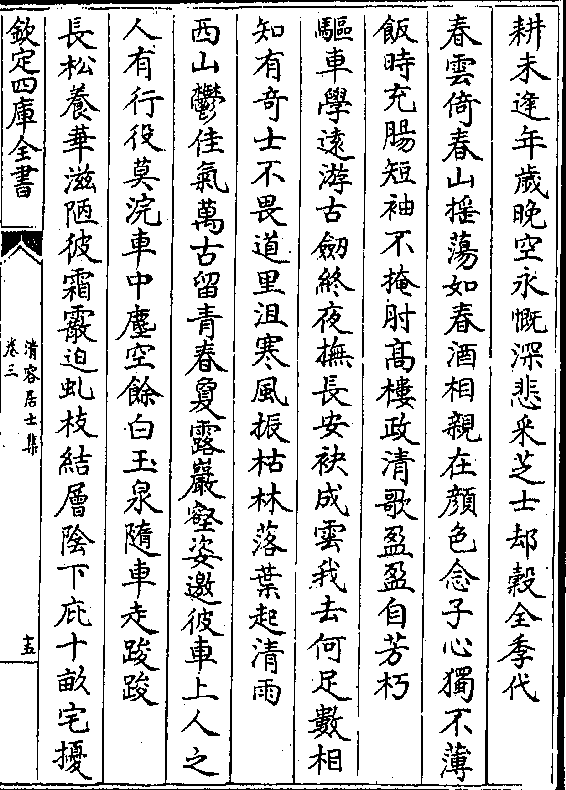 耕未逢年歳晚空永慨深悲采芝士却糓全季代
春雲倚春山摇蕩如春酒相親在顔色念子心獨不薄
飯時充腸短袖不掩肘髙樓政清歌盈盈自芳朽
驅車學逺游古劒終夜撫長安袂成雲我去何足數相
知有竒士不畏道里沮寒風振枯林落葉起清雨
西山鬱佳氣萬古留青春夐露巖壑姿邀彼車上人之
人有行役莫浣車中塵空餘白玉泉隨車走踆踆
長松養華滋陋彼霜霰迫虬枝結層陰下庇十畝宅擾
欽定四庫全書
清容居士集
卷三
十五